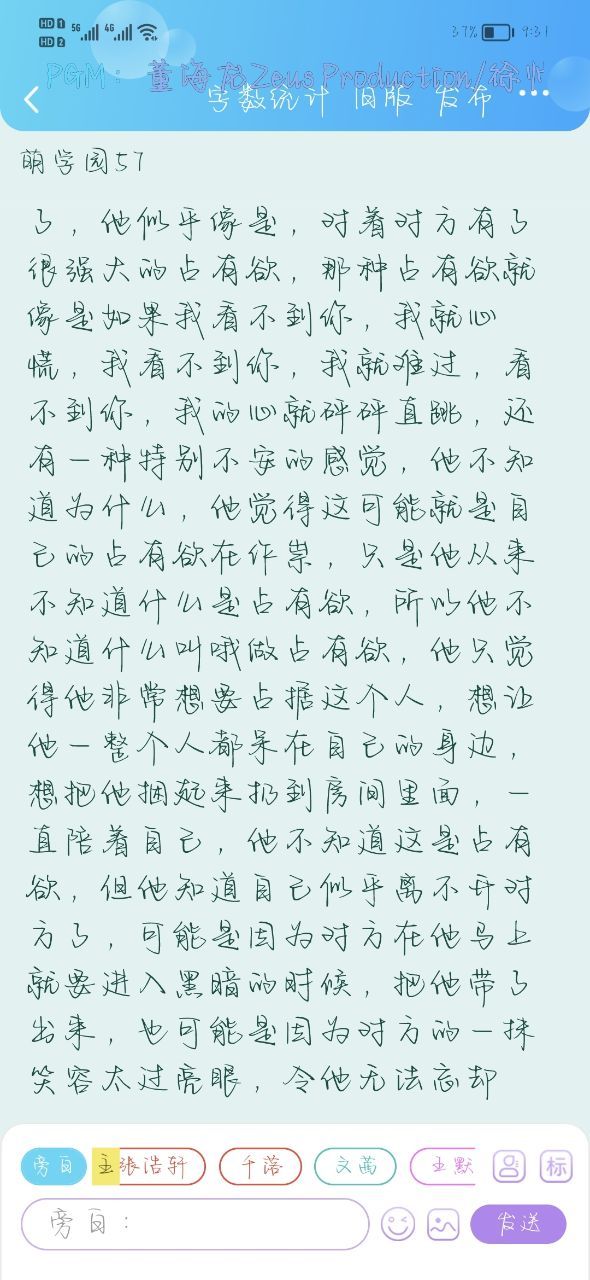 HD 1 5G 4G 37% 9:31
HD 2
PGM：董海龙Zeus Production/徐州
字数统计 旧版 发布 ...
萌学园57
了，他似乎像是，对着对方有了
很强大的占有欲，那种占有欲就
像是如果我看不到你，我就心
慌，我看不到你，我就难过，看
不到你，我的心就砰砰直跳，还
有一种特别不安的感觉，他不知
道为什么，他觉得这可能就是自
己的占有欲在作祟，只是他从来
不知道什么是占有欲，所以他不
知道什么叫哦做占有欲，他只觉
得他非常想要占据这个人，想让
他一整个人都呆在自己的身边，
想把他捆起来扔到房间里面，一
直陪着自己，他不知道这是占有
欲，但他知道自己似乎离不开对
方了，可能是因为对方在他马上
就要进入黑暗的时候，把他带了
出来，也可能是因为对方的一抹
笑容太过亮眼，令他无法忘却
旁白 主 张浩轩 千落 文茜 主默 标
旁白： 发送